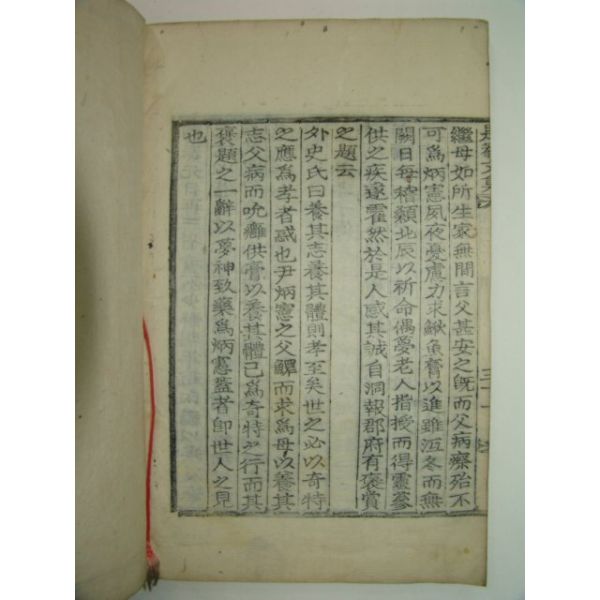 繼母如所生家無間言父甚安之旣而父病瘵殆不
可爲炳憲夙夜憂慮力求鰍魚膏以進雖冱冬而無
闕日每稽顙北辰以祈命偶夢老人指授而得靈蔘
供之疾遂霍然於是人感其誠自洞報郡府有褒賞
之題云
外史氏曰養其志養其體則孝至矣世之必以奇特
之應爲孝者惑也尹炳憲之父鰥而求爲母以養其
志父病而吮癰供膏以養其體已爲奇特之行而其
褒題之一辭以夢神致藥爲炳憲蓋者卽世人之見
也